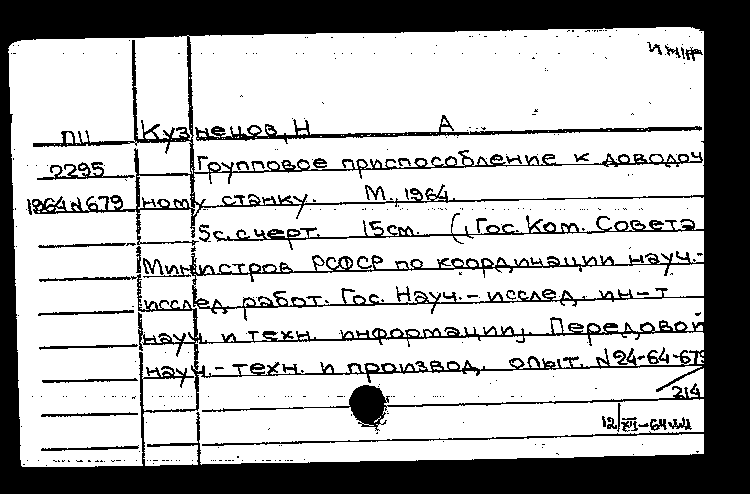 ПЦ Кузнецов, Н А
2295 Групповое приспособление к доводоч
1964 N 679 ному станку. М., 1964.
5с. с черт. 15см. (Гос. Ком. Совета
Министров РСФСР по координации науч.-
исслед. работ. Гос. Науч.-исслед. ин-т
науч. и техн. информации). Передовой
науч.-техн. и производ. опыт. N24-64-679
214
12/XII-64